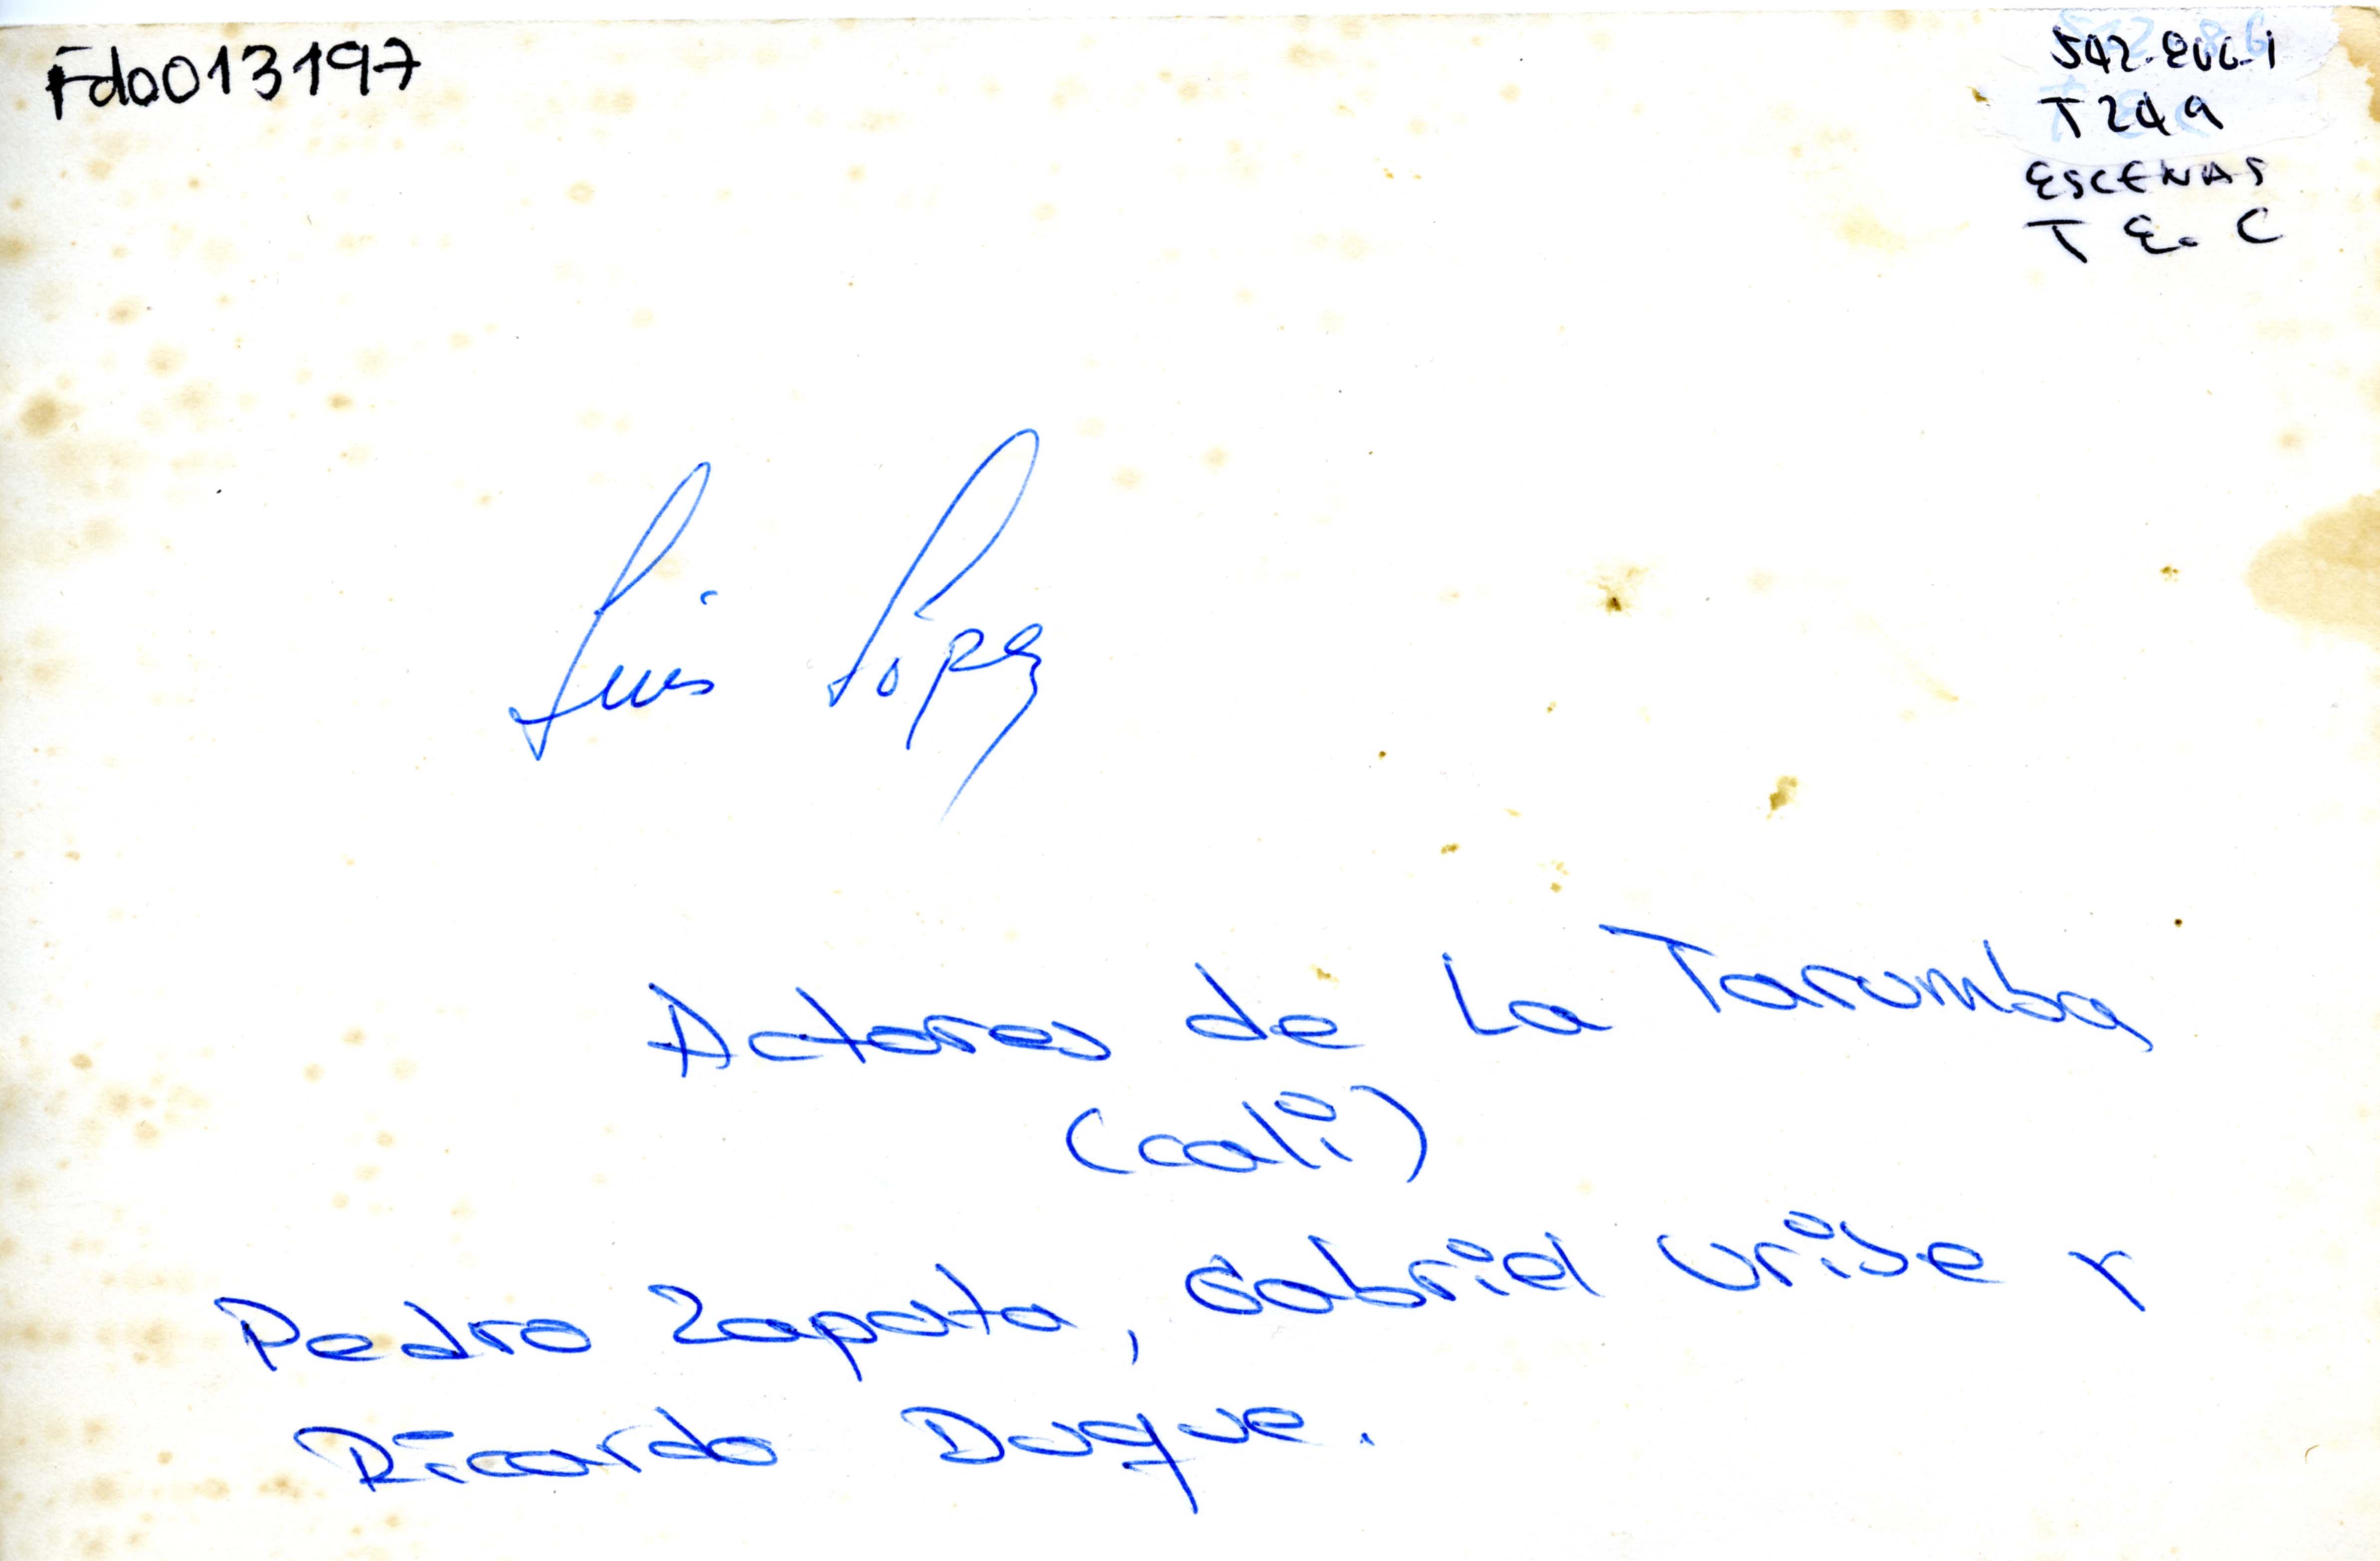 Fdo013197
T249
ESCENAS
T E. C
Luis López
Actores de La Tarumba
(cali)
Pedro Zapata, Gabriel Uribe Y
Ricardo Duque.